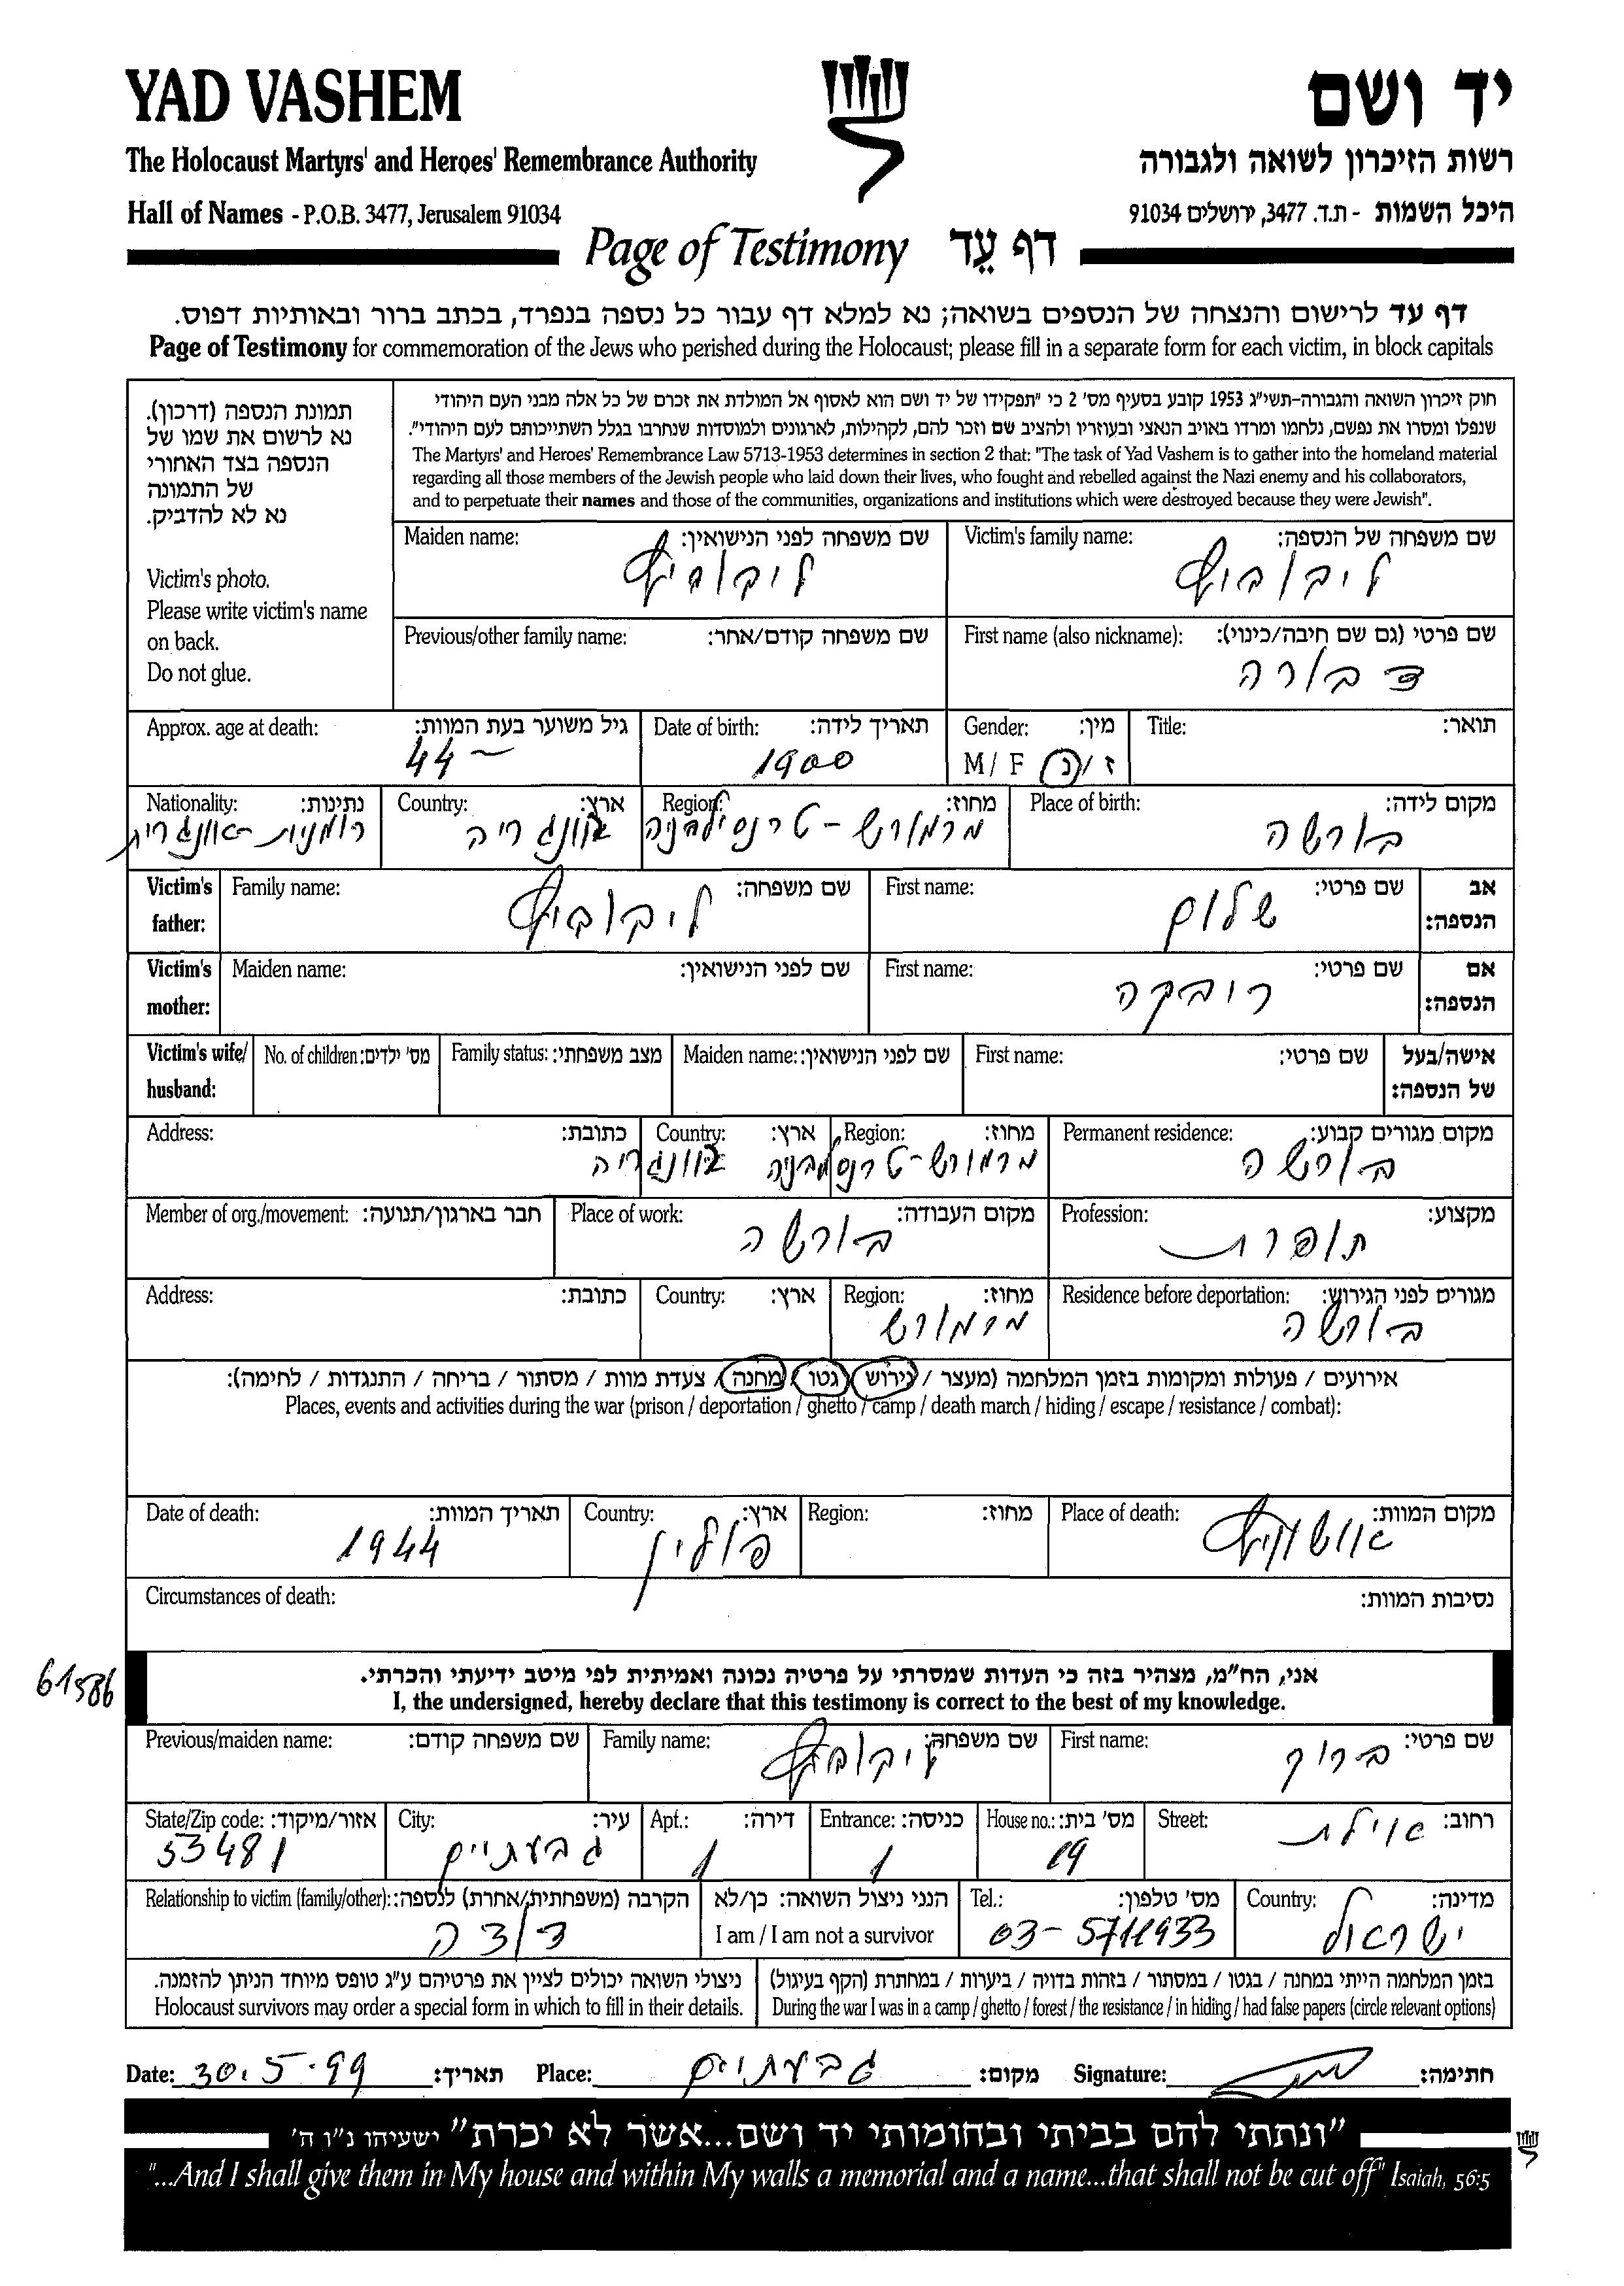 YAD VASHEM
יד ושם
The Holocaust Martyrs' and Heroes' Remembrance Authority
רשות הזיכרון לשואה ולגבורה
Hall of Names - P.O.B. 3477, Jerusalem 91034
היכל השמות - ת.ד. 3477, ירושלים 91034
Page of Testimony דף עֵד
דף עד לרישום והנצחה של הנספים בשואה; נא למלא דף עבור כל נספה בנפרד, בכתב ברור ובאותיות דפוס.
Page of Testimony for commemoration of the Jews who perished during the Holocaust; please fill in a separate form for each victim, in block capitals
תמונת הנספה (דרכון).
נא לרשום את שמו של
הנספה בצד האחורי
של התמונה
נא לא להדביק.
Victim's photo.
Please write victim's name
on back.
Do not glue.
חוק זיכרון השואה והגבורה-תשי"ג 1953 קובע בסעיף מס' 2 כי "תפקידו של יד ושם הוא לאסוף אל המולדת את זכרם של כל אלה מבני העם היהודי
שנפלו ומסרו את נפשם, נלחמו ומרדו באויב הנאצי ובעוזריו ולהציב שם וזכר להם, לקהילות, לארגונים ולמוסדות שנחרבו בגלל השתייכותם לעם היהודי".
The Martyrs' and Heroes' Remembrance Law 5713-1953 determines in section 2 that: "The task of Yad Vashem is to gather into the homeland material
regarding all those members of the Jewish people who laid down their lives, who fought and rebelled against the Nazi enemy and his collaborators,
and to perpetuate their names and those of the communities, organizations and institutions which were destroyed because they were Jewish".
Victim's family name: שם משפחה של הנספה:
ליבוביץ
Maiden name: שם משפחה לפני הנישואין:
ליבוביץ
First name (also nickname): שם פרטי (גם שם חיבה/כינוי):
דבורה
Previous/other family name: שם משפחה קודם/אחר:
Title: תואר:
Gender: מין:
M / F ז / נ
Date of birth: תאריך לידה:
1900
Approx. age at death: גיל משוער בעת המוות:
44 ~
Place of birth: מקום לידה:
בורשה
Region: מחוז:
מרמורש - טרנסילבניה
Country: ארץ:
אונגריה
Nationality: נתינות:
רומנית - אונגרית
Victim's father: אב הנספה:
First name: שם פרטי:
שלום
Family name: שם משפחה:
ליבוביץ
Victim's mother: אם הנספה:
First name: שם פרטי:
רובקה
Maiden name: שם לפני הנישואין:
Victim's wife/ husband: אישה/בעל של הנספה:
First name: שם פרטי:
Maiden name: שם לפני הנישואין:
Family status: מצב משפחתי:
No. of children: מס' ילדים:
Permanent residence: מקום מגורים קבוע:
בורשה
Region: מחוז:
מרמורש - טרנסילבניה
Country: ארץ:
אוונגריה
Address: כתובת:
Profession: מקצוע:
תופרת
Place of work: מקום העבודה:
בורשה
Member of org./movement: חבר בארגון/תנועה:
Residence before deportation: מגורים לפני הגירוש:
בורשה
Region: מחוז:
מרמורש
Country: ארץ:
Address: כתובת:
אירועים / פעולות ומקומות בזמן המלחמה (מעצר / גירוש / גטו / מחנה / צעדת מוות / מסתור / בריחה / התנגדות / לחימה):
Places, events and activities during the war (prison / deportation / ghetto / camp / death march / hiding / escape / resistance / combat):
Place of death: מקום המוות:
אושוויץ
Region: מחוז:
Country: ארץ:
פולין
Date of death: תאריך המוות:
1944
Circumstances of death: נסיבות המוות:
61586
אני, הח"מ, מצהיר בזה כי העדות שמסרתי על פרטיה נכונה ואמיתית לפי מיטב ידיעתי והכרתי.
I, the undersigned, hereby declare that this testimony is correct to the best of my knowledge.
First name: שם פרטי:
ברוך
Family name: שם משפחה:
ליבוביץ
Previous/maiden name: שם משפחה קודם:
Street: רחוב:
אילת
House no.: מס' בית:
19
Entrance: כניסה:
1
Apt.: דירה:
1
City: עיר:
גבעתיים
State/Zip code: אזור/מיקוד:
53481
Country: מדינה:
ישראל
Tel.: מס' טלפון:
03-5711933
הנני ניצול השואה: כן/לא
I am / I am not a survivor
Relationship to victim (family/other): הקרבה (משפחתית/אחרת) לנספה:
דודה
בזמן המלחמה הייתי במחנה / בגטו / במסתור / בזהות בדויה / ביערות / במחתרת (הקף בעיגול)
During the war I was in a camp / ghetto / forest / the resistance / in hiding / had false papers (circle relevant options)
ניצולי השואה יכולים לציין את פרטיהם ע"ג טופס מיוחד הניתן להזמנה.
Holocaust survivors may order a special form in which to fill in their details.
Date: 30.5.99 תאריך: Place: גבעתיים מקום: Signature: חתימה:
"ונתתי להם בביתי ובחומותי יד ושם...אשר לא יכרת" ישעיהו נ"ו ה'
"...And I shall give them in My house and within My walls a memorial and a name...that shall not be cut off" Isaiah, 56:5